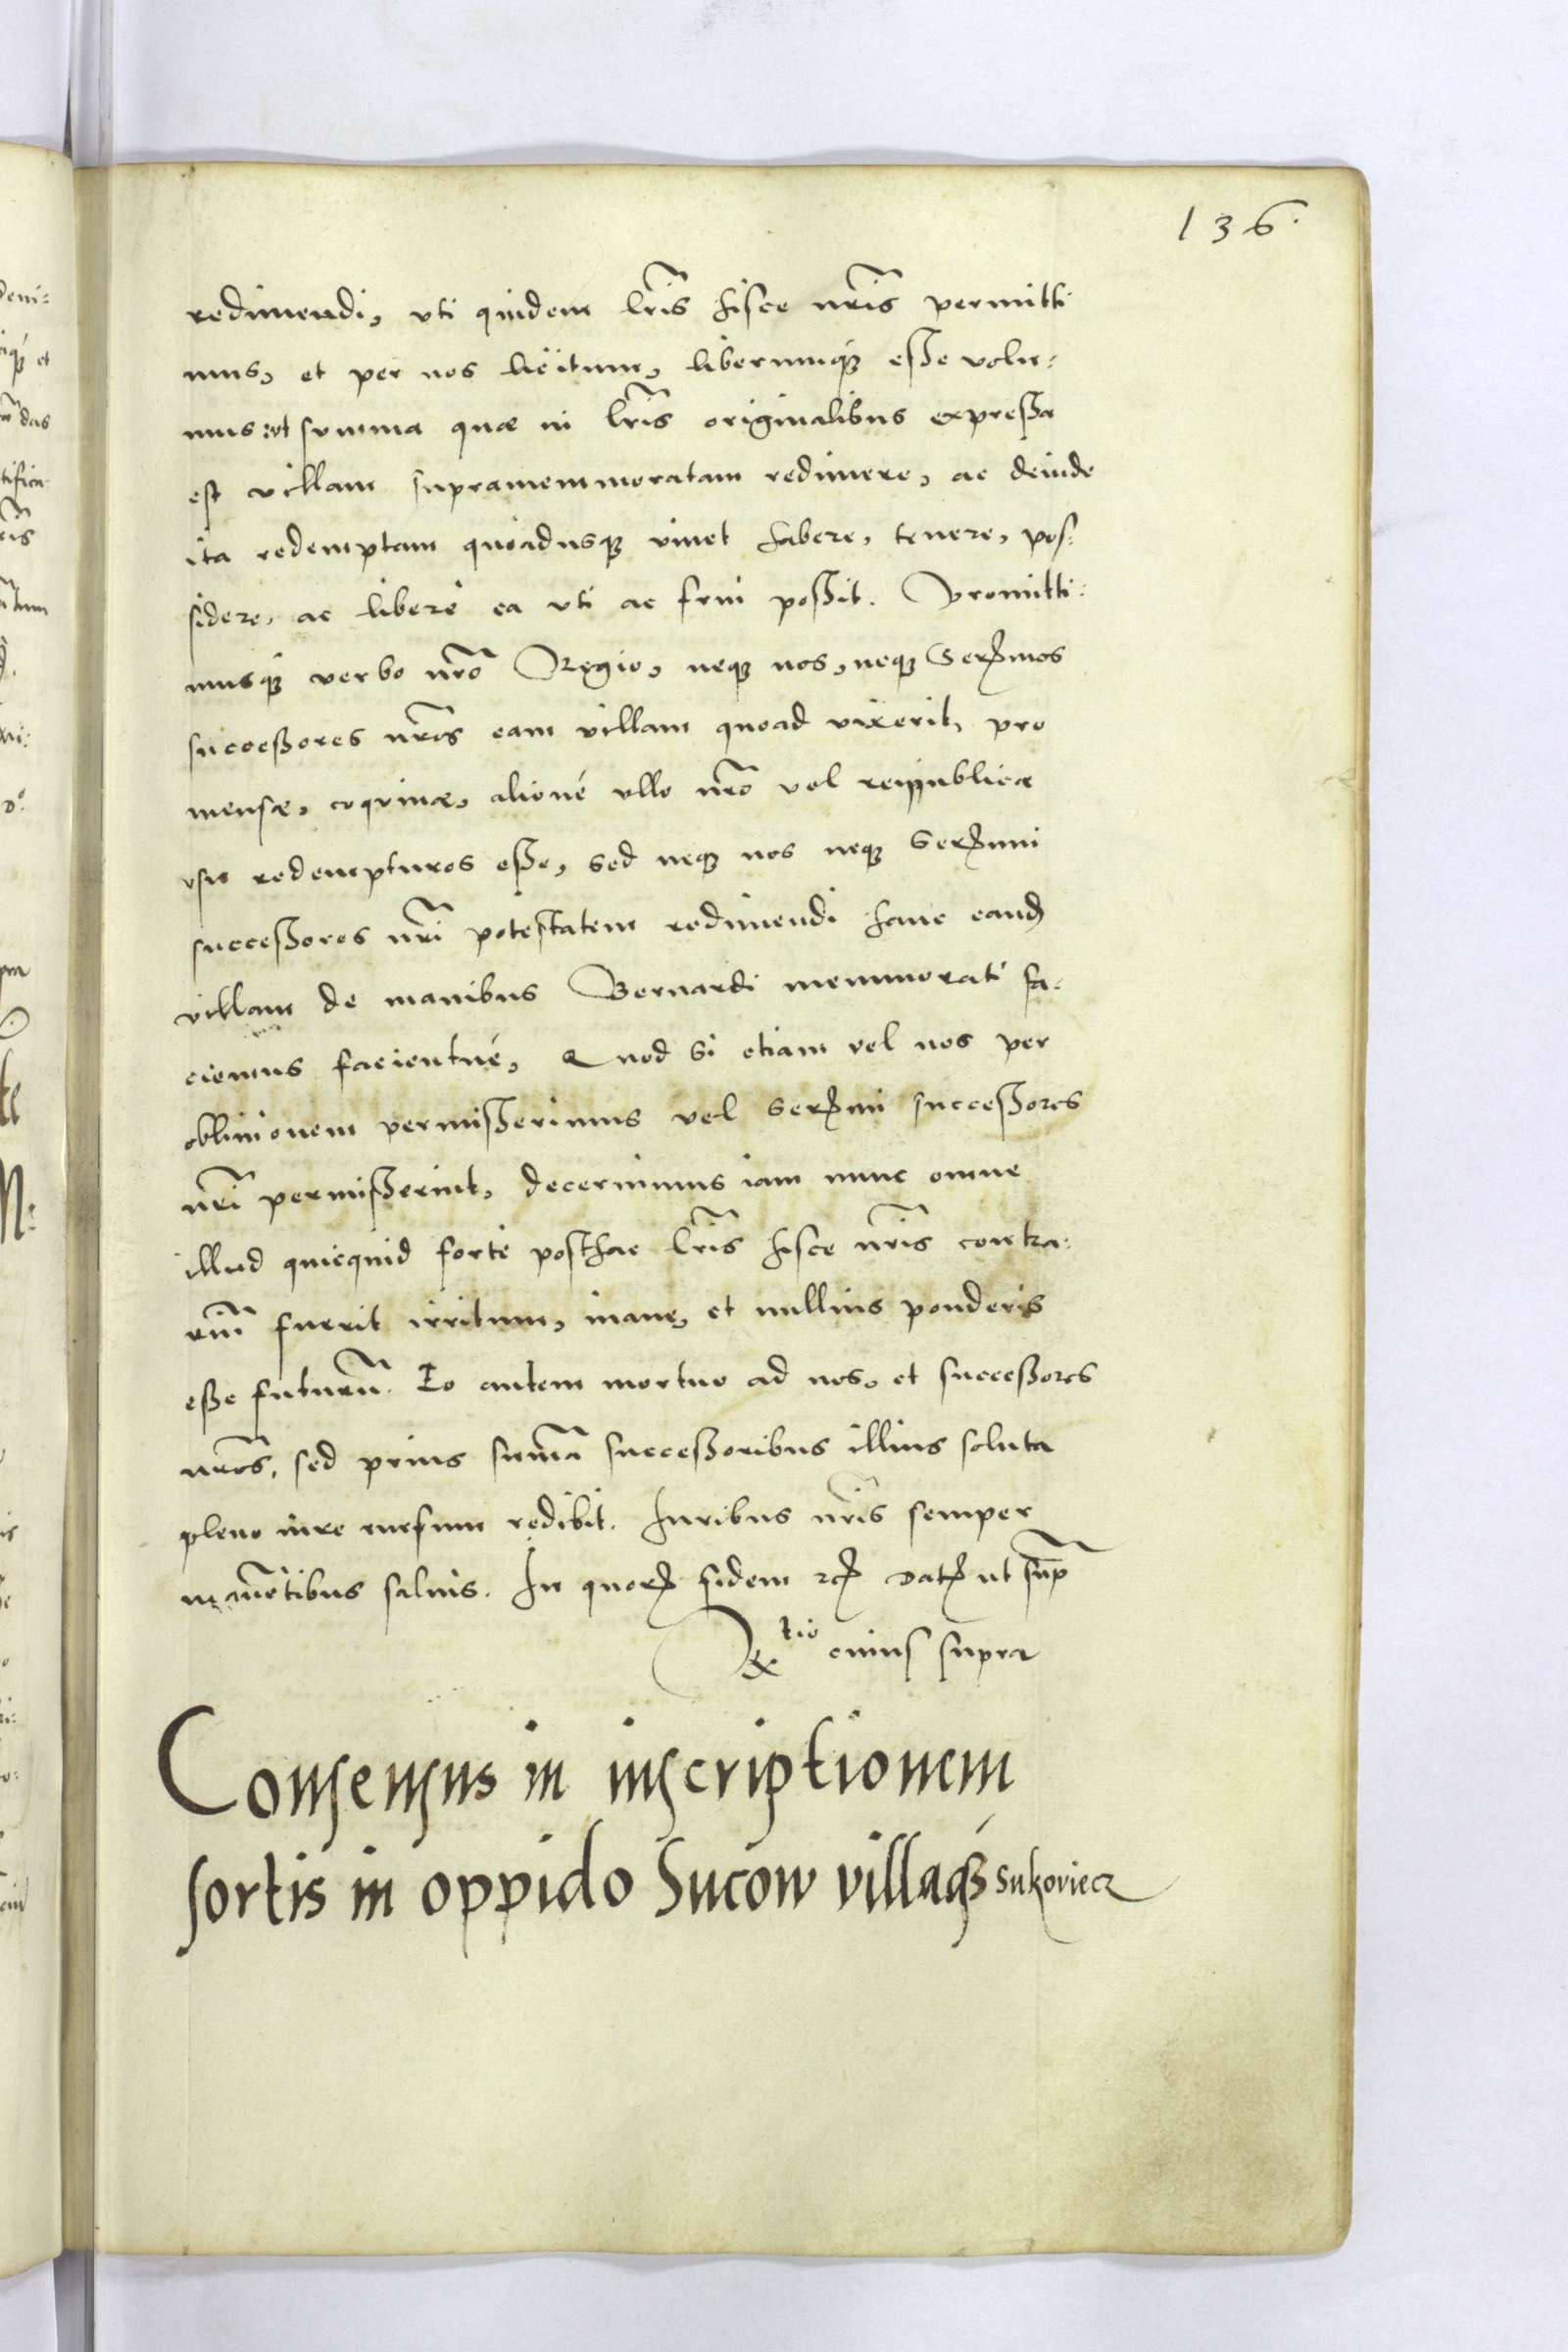 136.
redimendi, vti quidem lr̃is hisce nr̃is permitti
mus, et per nos licitum, liberumq́ꝫ eße volu-
mus: vt summa quæ in lr̃is originalibus expreßa
est villam supramemmoratam redimere, ac deinde
ita redemptam quoadusqꝫ viuet habere, tenere, pos-
sidere, ac liberè ea vti ac frui poßit. Promitti-
musq́ꝫ verbo nr̃o Regio, neqꝫ nos, neqꝫ Serꝫmos
succeßores nr̃os eam villam quoad vixerit, pro
mensæ, coquinæ, alioué vllo nr̃o vel reipublicæ
vsu redempturos eße, sed neqꝫ nos neqꝫ Serꝫmi
succeßores nr̃i potestatem redimendi hanc eandꝫ
villam de manibus Bernardi memmorati fa-
ciemus facientué, Quod si etiam vel nos per
obliuionem permißerimus vel serꝫmi succeßores
nr̃i permißerint, decernimus iam nunc omne
illud quicquid fortè posthac lr̃is hisce nr̃is contra-
riũ fuerit irritum, inane, et nullius ponderis
eße futurũ. Eo autem mortuo ad nos, et succeßores
nr̃os, sed prius sum̃a succeßoribus illius soluta
pleno iure rursum redibit. Iuribus nr̃is semper
manẽtibus saluis. In quorꝫ fidem ꝛcꝫ Datꝫ ut sup̃
R̃tio cuius supra
Consensus in inscriptionem
sortis in oppido Sucow villaq́ꝫ Sukoviecz